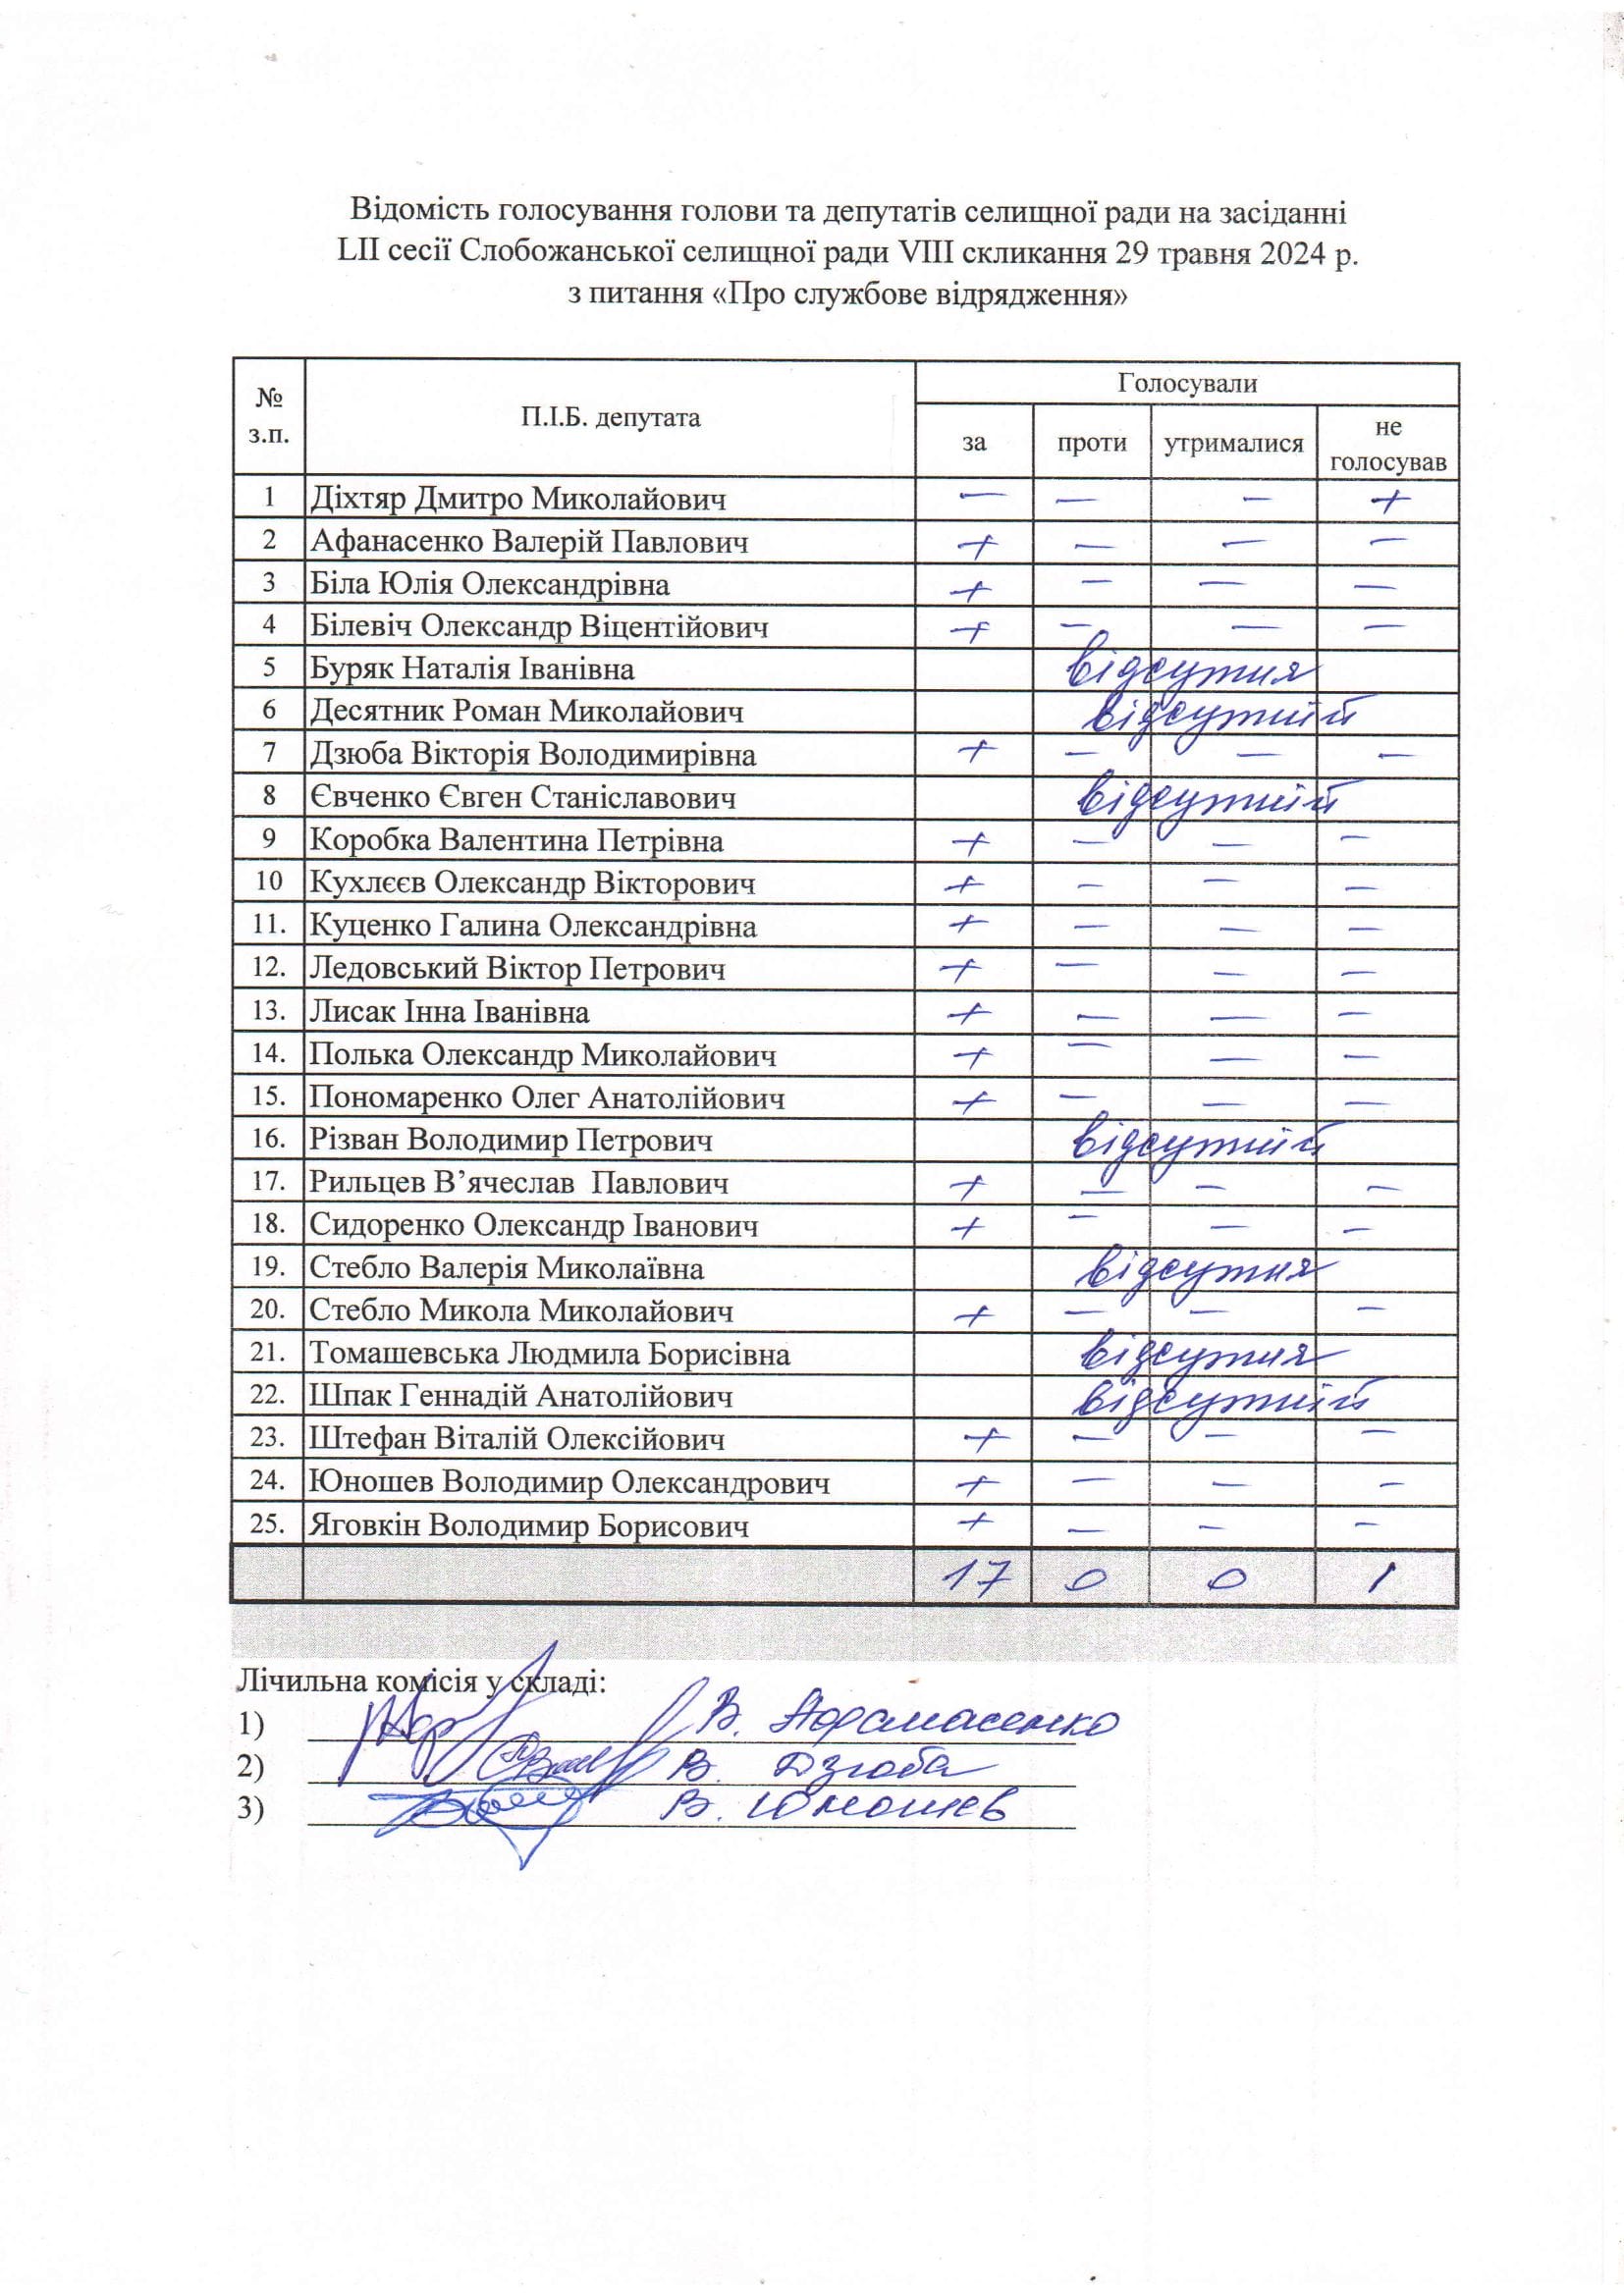 Відомість голосування голови та депутатів селищної ради на засіданні
LII сесії Слобожанської селищної ради VIII скликання 29 травня 2024 р.
з питання «Про службове відрядження»
№ з.п. П.І.Б. депутата Голосували
за проти утрималися не голосував
1 Діхтяр Дмитро Миколайович — — — +
2 Афанасенко Валерій Павлович + — — —
3 Біла Юлія Олександрівна + — — —
4 Білевіч Олександр Віцентійович + — — —
5 Буряк Наталія Іванівна відсутня
6 Десятник Роман Миколайович відсутній
7 Дзюба Вікторія Володимирівна + — — —
8 Євченко Євген Станіславович відсутній
9 Коробка Валентина Петрівна + — — —
10 Кухлєєв Олександр Вікторович + — — —
11. Куценко Галина Олександрівна + — — —
12. Ледовський Віктор Петрович + — — —
13. Лисак Інна Іванівна + — — —
14. Полька Олександр Миколайович + — — —
15. Пономаренко Олег Анатолійович + — — —
16. Різван Володимир Петрович відсутній
17. Рильцев В’ячеслав Павлович + — — —
18. Сидоренко Олександр Іванович + — — —
19. Стебло Валерія Миколаївна відсутня
20. Стебло Микола Миколайович + — — —
21. Томашевська Людмила Борисівна відсутня
22. Шпак Геннадій Анатолійович відсутній
23. Штефан Віталій Олексійович + — — —
24. Юношев Володимир Олександрович + — — —
25. Яговкін Володимир Борисович + — — —
17 0 0 1
Лічильна комісія у складі:
1) В. Афанасенко
2) В. Дзюба
3) В. Юношев